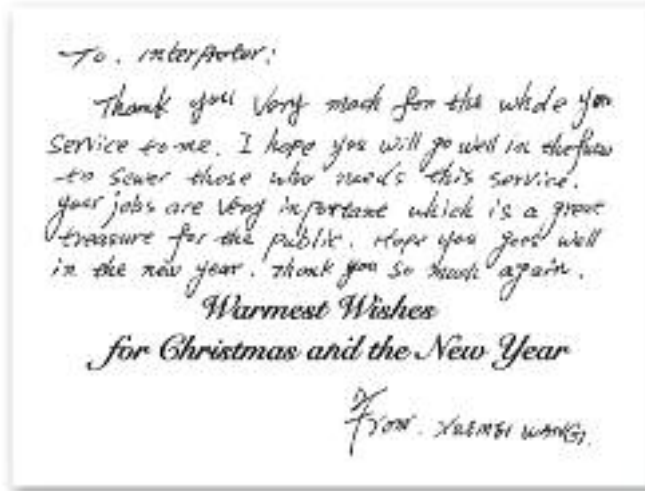 To. interpreter:
Thank you very much for the whole year
service to me. I hope you will go well in the future
to sewer those who needs this service.
your jobs are very important which is a great
treasure for the public. Hope you goes well
in the new year. Thank you so much again.
Warmest Wishes
for Christmas and the New Year
From. WANG